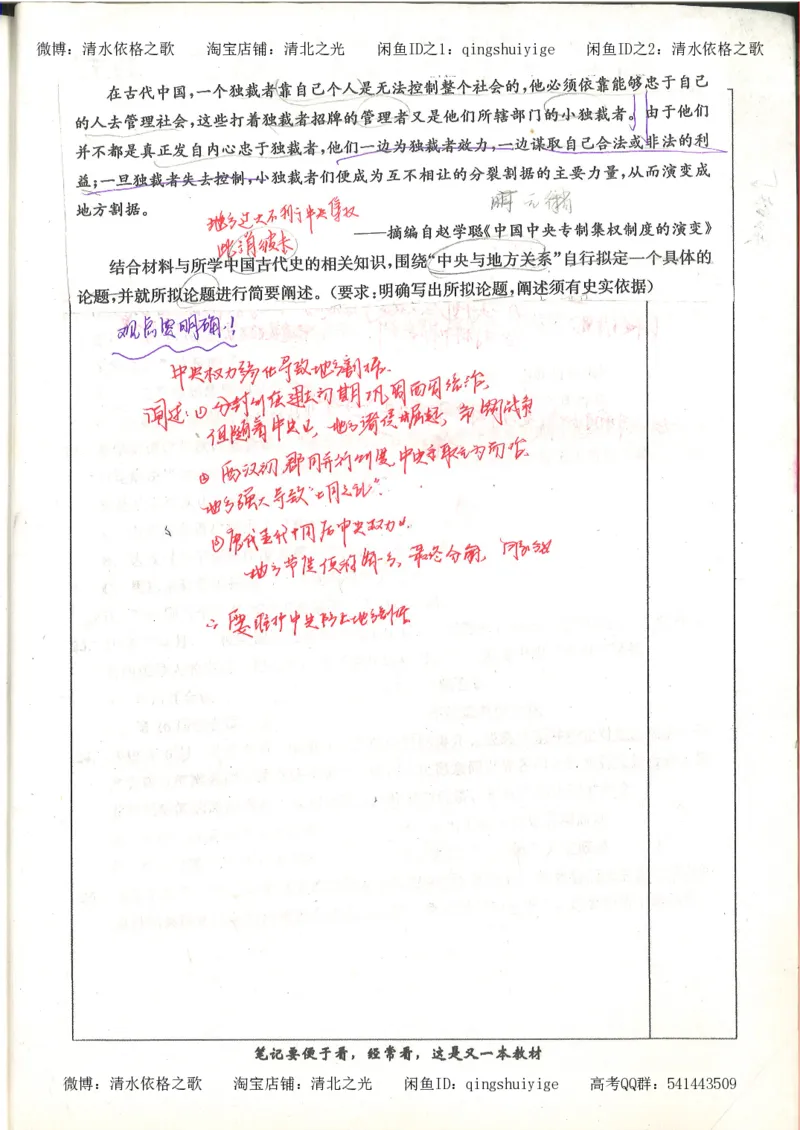 微博：清水依格之歌 淘宝店铺：清北之光 闲鱼ID之1：qingshuiyige 闲鱼ID之2：清水依格之歌
在古代中国，一个独裁者靠自己个人是无法控制整个社会的，他必须依靠能够忠于自己
的人去管理社会，这些打着独裁者招牌的管理者又是他们所辖部门的小独裁者。由于他们
并不都是真正发自内心忠于独裁者，他们一边为独裁者效力，一边谋取自己合法或非法的利
益；一旦独裁者失去控制，小独裁者们便成为互不相让的分裂割据的主要力量，从而演变成
地方割据。
地方过大不利于中央集权
此消彼长
——摘编自赵学聪《中国中央专制集权制度的演变》
结合材料与所学中国古代史的相关知识，围绕“中央与地方关系”自行拟定一个具体的
论题，并就所拟论题进行简要阐述。（要求：明确写出所拟论题，阐述须有史实依据）
观点要明确！
中央权力弱化导致地方割据.
阐述：① 分封制在建立初期巩固西周统治.
但随着中央，地方诸侯崛起，
② 西汉初郡国并行制度，中央采取无为而治
地方强大导致“七国之乱”.
③ 唐代 中央权力
地方节度使，最终分崩，
∴ 要 中央防止地方割据
笔记要便于看，经常看，这是又一本教材
微博：清水依格之歌 淘宝店铺：清北之光 闲鱼ID：qingshuiyige 高考QQ群：541443509